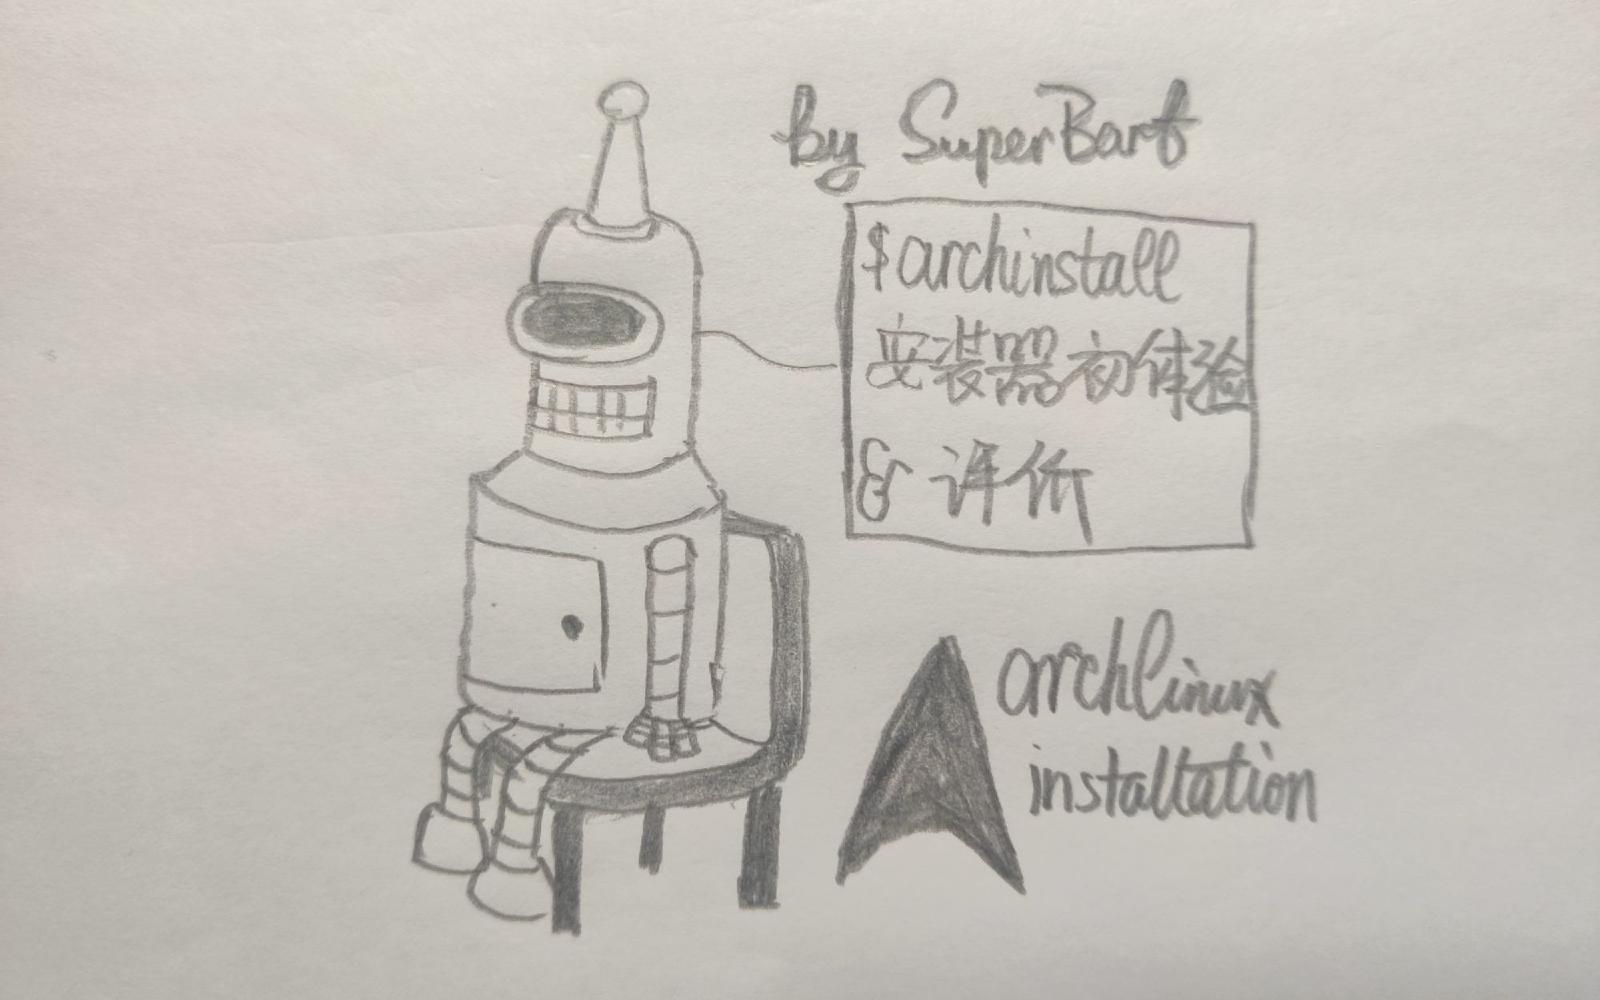 by SuperBarf
$archinstall
安装器初体验
& 评价
archlinux
installation